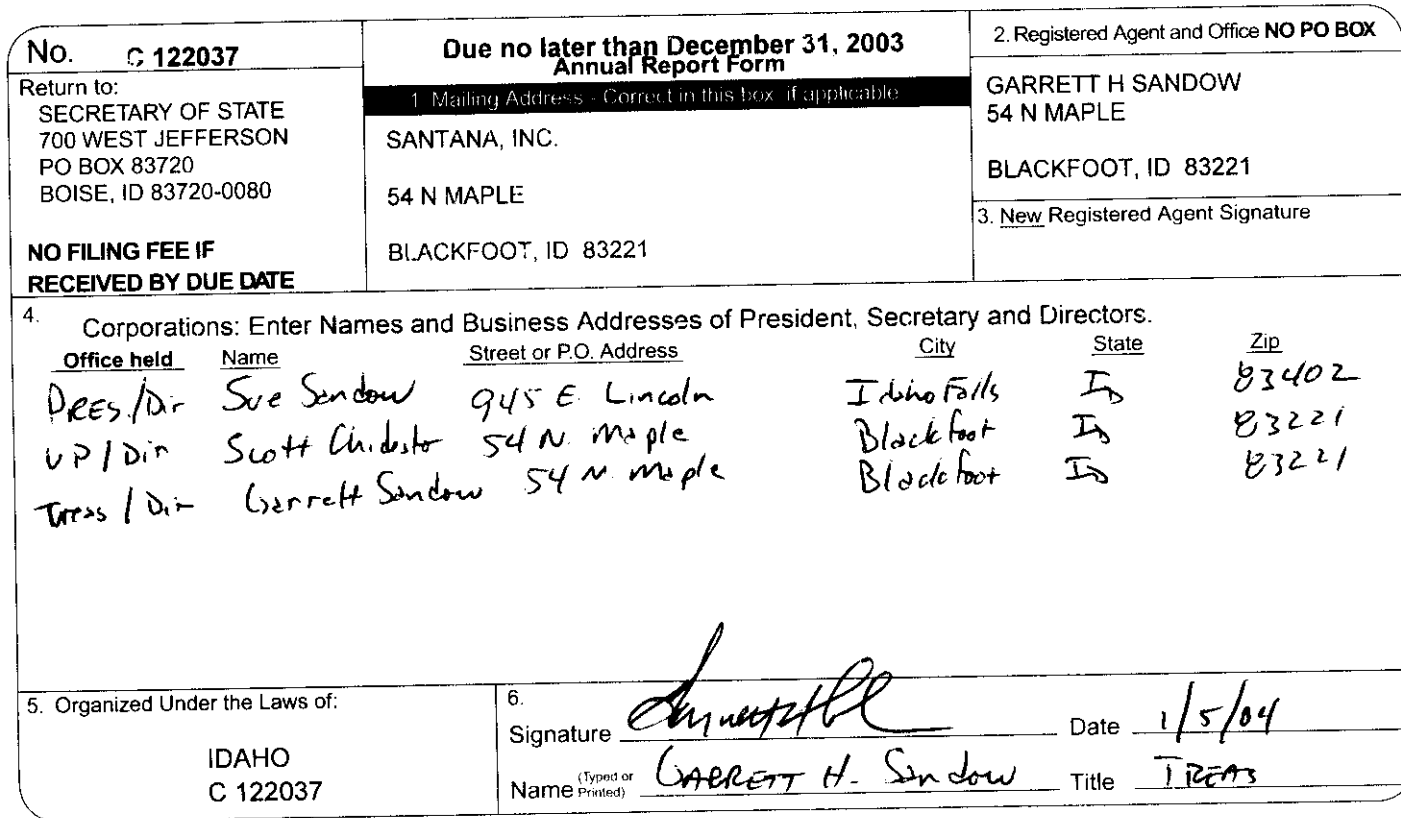 No. C 122037
Return to:
SECRETARY OF STATE
700 WEST JEFFERSON
PO BOX 83720
BOISE, ID 83720-0080
NO FILING FEE IF
RECEIVED BY DUE DATE
Due no later than December 31, 2003
Annual Report Form
1. Mailing Address - Correct in this box if applicable
SANTANA, INC.
54 N MAPLE
BLACKFOOT, ID 83221
2. Registered Agent and Office NO PO BOX
GARRETT H SANDOW
54 N MAPLE
BLACKFOOT, ID 83221
3. New Registered Agent Signature
4. Corporations: Enter Names and Business Addresses of President, Secretary and Directors.
Office held Name Street or P.O. Address City State Zip
PRES./Dir Sue Sandow 945 E. Lincoln Idaho Falls ID 83402
VP/Dir Scott 54 N. Maple Blackfoot ID 83221
Treas/Dir Garrett Sandow 54 N. Maple Blackfoot ID 83221
5. Organized Under the Laws of:
IDAHO
C 122037
6.
Signature Date 1/5/04
Name (Typed or Printed) GARRETT H. Sandow Title TREAS